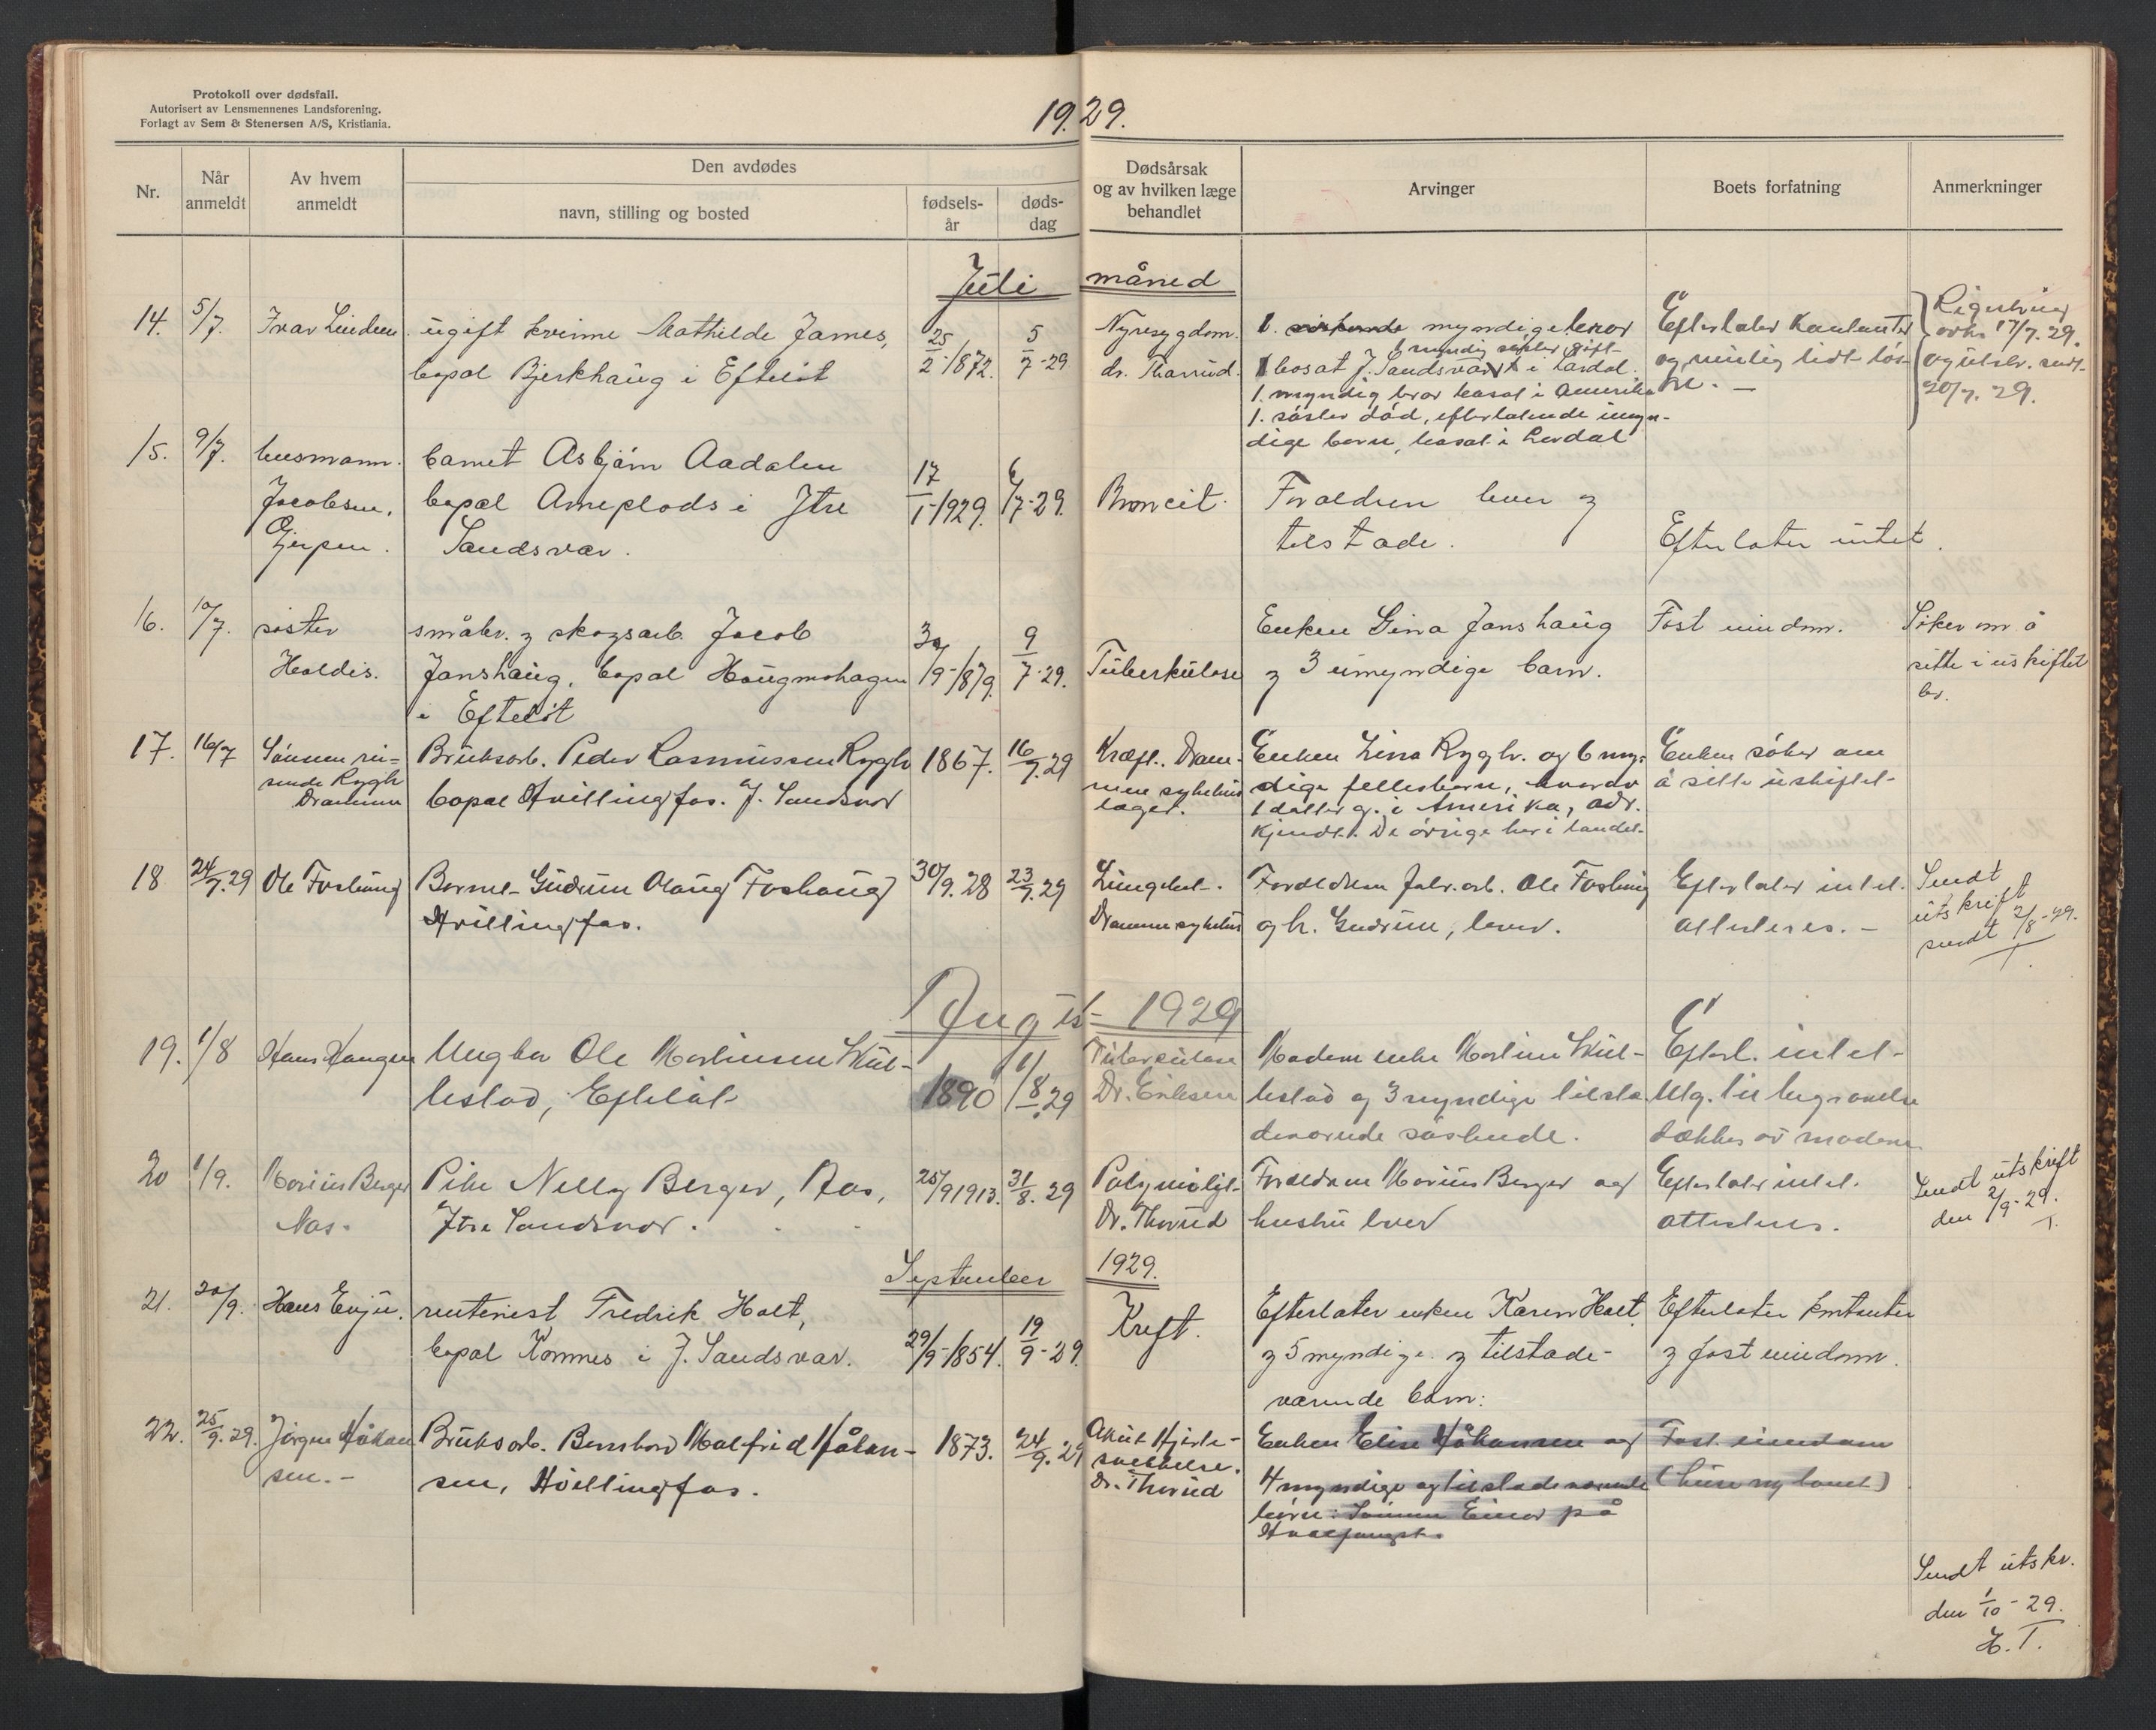 Protokoll over dødsfall.
Autorisert av Lensmennenes Landsforening.
Forlagt av Sem & Stenersen A/S, Kristiania.
1929.
Nr.
Når anmeldt
Av hvem anmeldt
Den avdødes
navn, stilling og bosted
fødsels-år
døds-dag
Dødsårsak og av hvilken læge behandlet
Arvinger
Boets forfatning
Anmerkninger
Juli måned
14. 5/7. Ivar Linden ugift kvinne Mathilde James, 25/2-1872. 5/7-29 Nyresygdom.
bopæl Bjerkhaug i Efteløt dr. Tharud.
1. myndige bror
1 myndig søster gift
bosat J. Sandsvær i Lardal.
1. myndig bror bosat i Amerika
1. søster død, efterlatende umyn-
dige barn, bosat i Lardal
Efterlater Kontanter
og rimelig lidt løs-
øre. —
17/7. 29.
og utskr. sendt
20/7. 29.
15. 9/7. husmann barnet Asbjørn Aadalen 17/1-1929. 6/7-29. Broncit. Forældren lever og
Jacobsen, bopæl Arneplads i Ytre tilstæde. Efterlater intet.
Gjerpen. Sandsvær.
16. 10/7. søster småbr. og skogsarb. Jacob 30/9-1879. 9/7-29. Tuberkulose Enken Gina Janshaug Fast eiendom. Søker om å
Haldis. Janshaug, bopæl Haugmohagen og 3 umyndige barn. sitte i uskiftet
i Efteløt bo.
17. 16/7 Sønnen Bruksarb. Peder Rasmussen Rygh 1867. 16/7.29 Kræft. Dram- Enken Lina Rygh. og 6 myn- Enken søker om
Rygh bopæl Hvillingfos. Y. Sandsvær men sykehus dige fellesbarn, hvorav å sitte uskiftet
Drammen laget. 1 datter g. i Amerika, adr.
kjendt. De øvrige her i landet.
18 24/7.29 Ole Foshaug Barnet Gudrun Olaug Foshaug 30/9.28 23/7.29 Lungebet. Forældren fabr.arb. Ole Foshaug Efterlater intet. Sendt
Hvillingfos. Drammen sykehus og h. Gudrun, lever. attesteres. — utskrift
sendt 2/8-29.
August 1929
19. 1/8 Hans Haugen Ungkar Ole Martinsen Skul- 1890 1/8.29 Tuberkulose Moderen enke Martine Skul- Efterl. intet
lestad, Efteløt Dr. Eriksen lestad og 3 myndige tilstæ- Utg. til begravelse
deværende søskende. dækkes av moderen
20 1/9. Marius Berger Pike Nelly Berger, Aas, 25/9 1913. 31/8.29 Forældrene Marius Berger og Efterlater intet. Sendt utskrift
Aas. Ytre Sandsvær. Dr. Thorud hustru lever attesteres. den 2/9-29.
T.
September 1929.
21. 20/9. Hans Enju. rentenist Fredrik Holt, 29/9-1854. 19/9-29. Kreft. Efterlater enken Karen Holt Efterlater kontanter
bopæl Komnes i Y. Sandsvær. og 5 myndige og tilstæde- og fast eiendom.
værende barn:
22. 25/9.29. Jørgen Håkan- Bruksarb. Bernhard Halfrid Håkan- 1873. 24/9.29 Akut Hjerte- Enken Elise Håkansen og Fast eiendom
sen.- sen, Hvillingfos. svekkelse. 4 myndige og tilstedeværende (huse og tomt)
Dr. Thorud børn: Sønnen Einar på
Hvalfangst.
Sendt utskr.
den 1/10-29.
H.T.